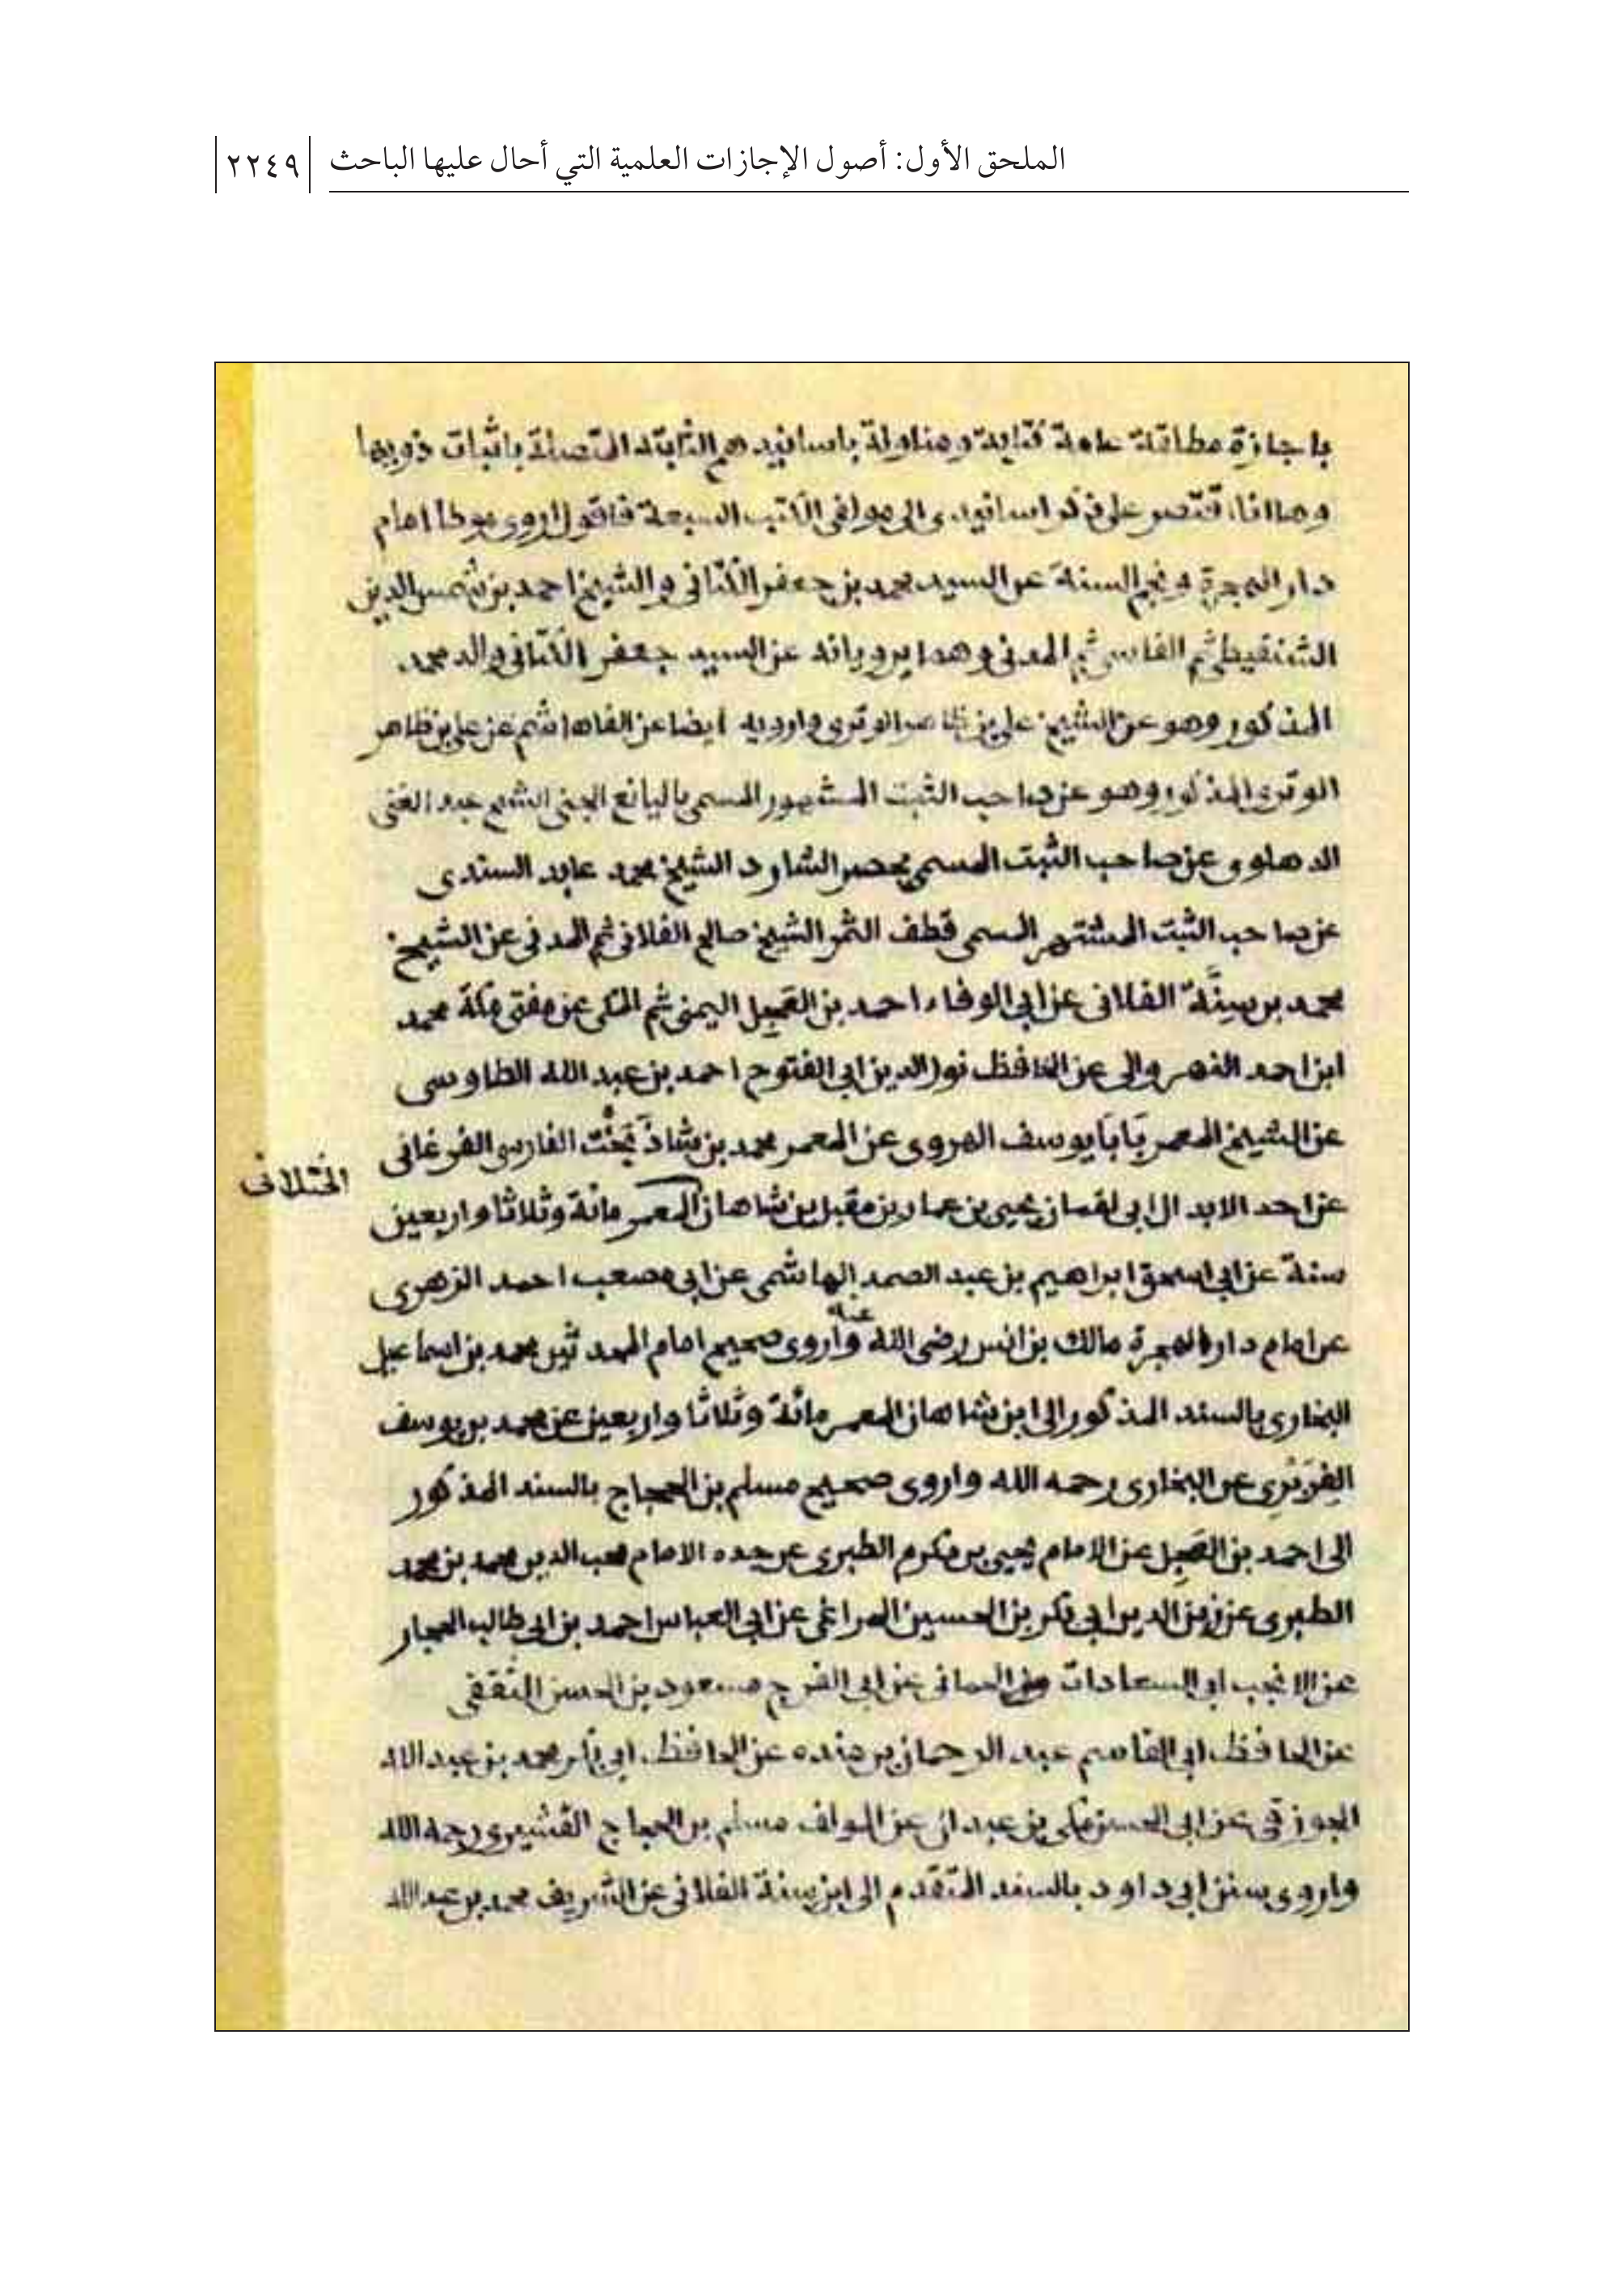 الملحق الأول: أصول الإجازات العلمية التي أحال عليها الباحث ٢٢٤٩
باجازة مطلقة عامة كتابة ومناولة باسانيدهم الثابتة المتصلة باثبات ذويها
وها انا اقتصر على ذكر اسانيدى الى مولفى الكتب السبعة فاقول اروى موطا امام
دار الهجرة ونجم السنة عن السيد محمد بن جعفر الكتانى والشيخ احمد بن شمس الدين
الشنقيطى ثم الفاسى ثم المدنى وهما يرويانه عن السيد جعفر الكتانى والد محمد
المذكور وهو عن الشيخ على بن ظاهر الوترى وارويه ايضا عن الفاهاشم عن على بن ظاهر
الوترى المذكور وهو عن صاحب الثبت المشهور المسمى باليانع الجنى الشيخ عبد الغنى
الدهلوى عن صاحب الثبت المسمى بحصر الشارد الشيخ محمد عابد السندى
عن صاحب الثبت المشتهر المسمى قطف الثمر الشيخ صالح الفلانى ثم المدنى عن الشيخ
محمد بن سِنَّة الفلانى عن ابى الوفاء احمد بن العَجِل اليمنى ثم المكى عن مفتى مكة محمد
ابن احمد النهروالى عن الحافظ نور الدين ابى الفتوح احمد بن عبد الله الطاوسى
عن الشيخ المعمر بَابَا يوسف الهروى عن المعمر محمد بن شاذ بَخْت الفارسى الفرغانى
الختلانى
عن احد الابدال ابى لقمان يحيى بن عمار بن مقبل بن شاهان المعمر مائة وثلاثا واربعين
سنة عن ابى اسحق ابراهيم بن عبد الصمد الهاشمى عن ابى مصعب احمد الزهرى
عن امام دار الهجرة مالك بن انس رضى الله عنه واروى صحيح امام المحدثين محمد بن اسماعيل
البخارى بالسند المذكور الى ابن شاهان المعمر مائة وثلاثا واربعين عن محمد بن يوسف
الفِرَبْرِى عن البخارى رحمه الله واروى صحيح مسلم بن الحجاج بالسند المذكور
الى احمد بن العَجِل عن الامام يحيى بن مكرم الطبرى عن جده الامام محب الدين محمد بن محمد
الطبرى عن زين الدين ابى بكر بن الحسين المراغى عن ابى العباس احمد بن ابى طالب الحجار
عن الانجب ابى السعادات الحمامى عن ابى الفرج مسعود بن الحسن الثقفى
عن الحافظ ابى القاسم عبد الرحمان بن منده عن الحافظ ابى بكر محمد بن عبد الله
الجوزقى عن ابى الحسن مكى بن عبدان عن المولف مسلم بن الحجاج القشيرى رحمه الله
واروى سنن ابى داود بالسند المتقدم الى ابن سنة الفلانى عن الشريف محمد بن عبد الله